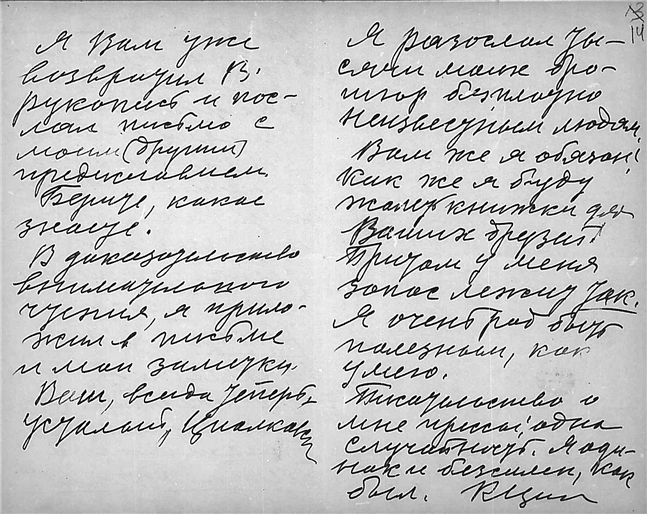 Я Вам уже
возвратил В.
рукопись и пос-
лал письмо с
моим (другим)
предисловием
Берите, какое
знаете.
В доказательство
внимательного
чтения, я прило-
жил в письме
и мои заметки
Ваш, всегда теперь
усталый, Циолковский
14
Я разослал ты-
сячи моих бро-
шюр бесплатно
неизвестным людям.
Вам же я обязан!
Как же я буду
жалеть книжки для
Ваших друзей!
Притом у меня
запас лежит так.
Я очень рад быть
полезным, как
умею.
о
мне прессы: одна
случайность. Я оди-
нок и безсилен, как
был. КЦиол